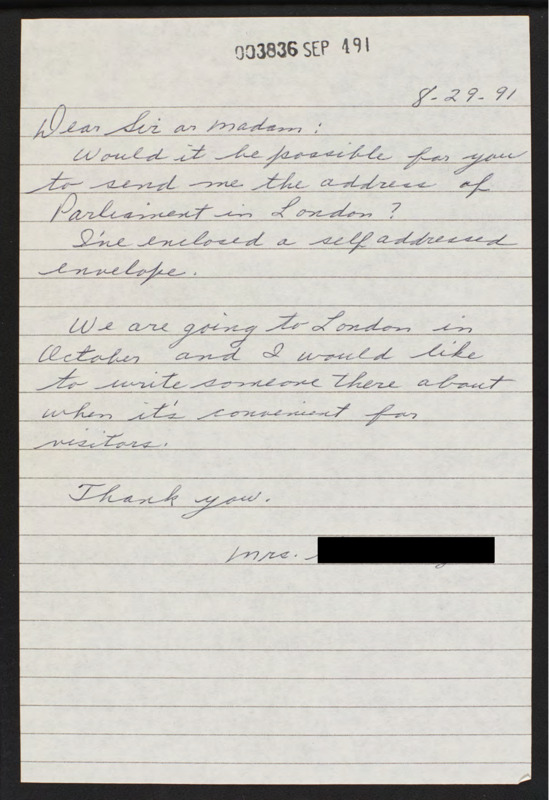 003836 SEP 491
8-29-91
Dear Sir or Madam:
Would it be possible for you
to send me the address of
Parliament in London?
I've enclosed a self addressed
envelope.
We are going to London in
October and I would like
to write someone there about
when it's convenient for
visitors.
Thank you.
Mrs.